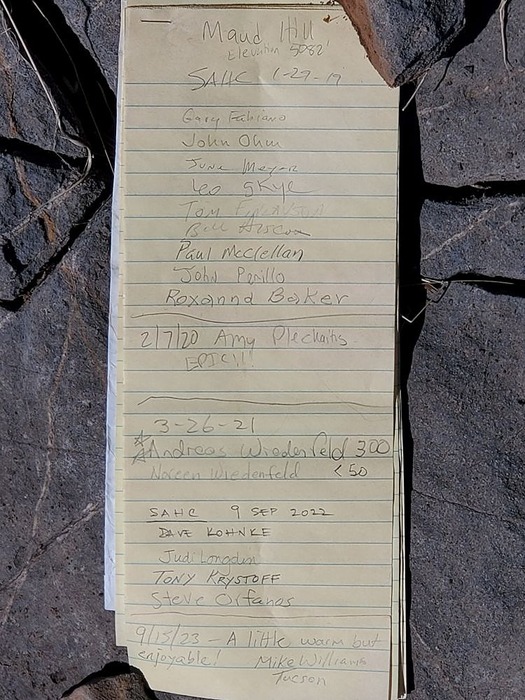 Maud Hill
Elevation 5082'
SAHC 1-27-19
Gary Fabiano
John Ohm
June Meyer
Leo
Tom
Bill
Paul McClellan
John Parillo
Roxanna Baker
2/7/20 Amy Plechaitis
EPIC!!!
3-26-21
Andreas Wiedenfeld 300
Noreen Wiedenfeld <50
SAHC 9 SEP 2022
DAVE KOHNKE
Judi Longden
TONY KRYSTOFF
Steve Orfanos
9/15/23 - A little warm but
enjoyable! Mike Williams
Tucson